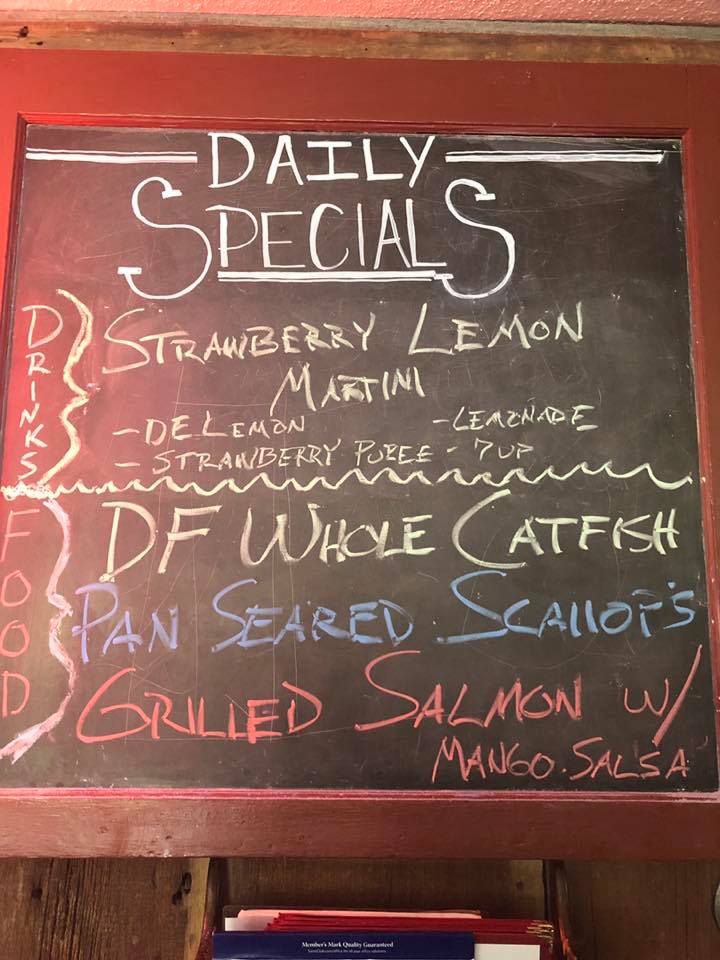 DAILY
SPECIALS
DRINKS
STRAWBERRY LEMON
MARTINI
- DELEMON
- LEMONADE
- STRAWBERRY PUREE - 7UP
FOOD
DF WHOLE CATFISH
PAN SEARED SCALLOP'S
GRILLED SALMON W/
MANGO SALSA
Member's Mark Quality Guaranteed